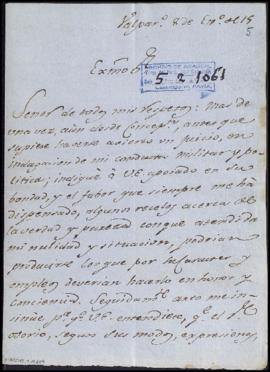 Valpar.º 8 de En.º de 15
5
Exmo S.or
5 2 1061
Señor de todo mi respeto: Mas de
una vez, aun desde Concep.n, antes que
supiese haverse abierto un juicio, en
indagacion de mi conducta militar y po-
litica; indiqué à VE. apoyado en su
bondad, y el fabor que siempre me ha
dispensado, algunos recelos acerca de
la verdad y pureza conque atendida
mi nulidad y situacion, podrian
producirse los que por
empleos deverian hacerlo en honor y
conciencia. Seguidam.te
p.a q.e VE. entendiere, q.e el S.r
Osorio, segun sus modos, expresiones,